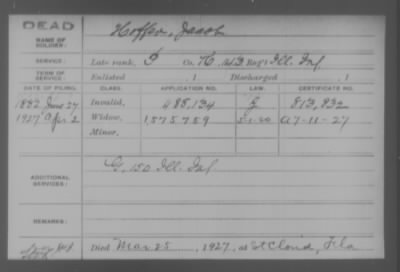 DEAD
NAME OF SOLDIER: Hoffer, Jacob
SERVICE: Late rank, P Co. K, 143 Reg't Ill. Inf.
TERM OF SERVICE: Enlisted , 1 Discharged , 1
DATE OF FILING. CLASS. APPLICATION NO. LAW. CERTIFICATE NO.
1882 June 27 Invalid, 488,134 G 813,832
1927 Apr. 2 Widow, 1,575,759 5-1-20 A 7-11-27
Minor,
ADDITIONAL SERVICES: G, 150 Ill. Inf.
REMARKS:
Died Mar. 25, 1927, at St Cloud, Fla